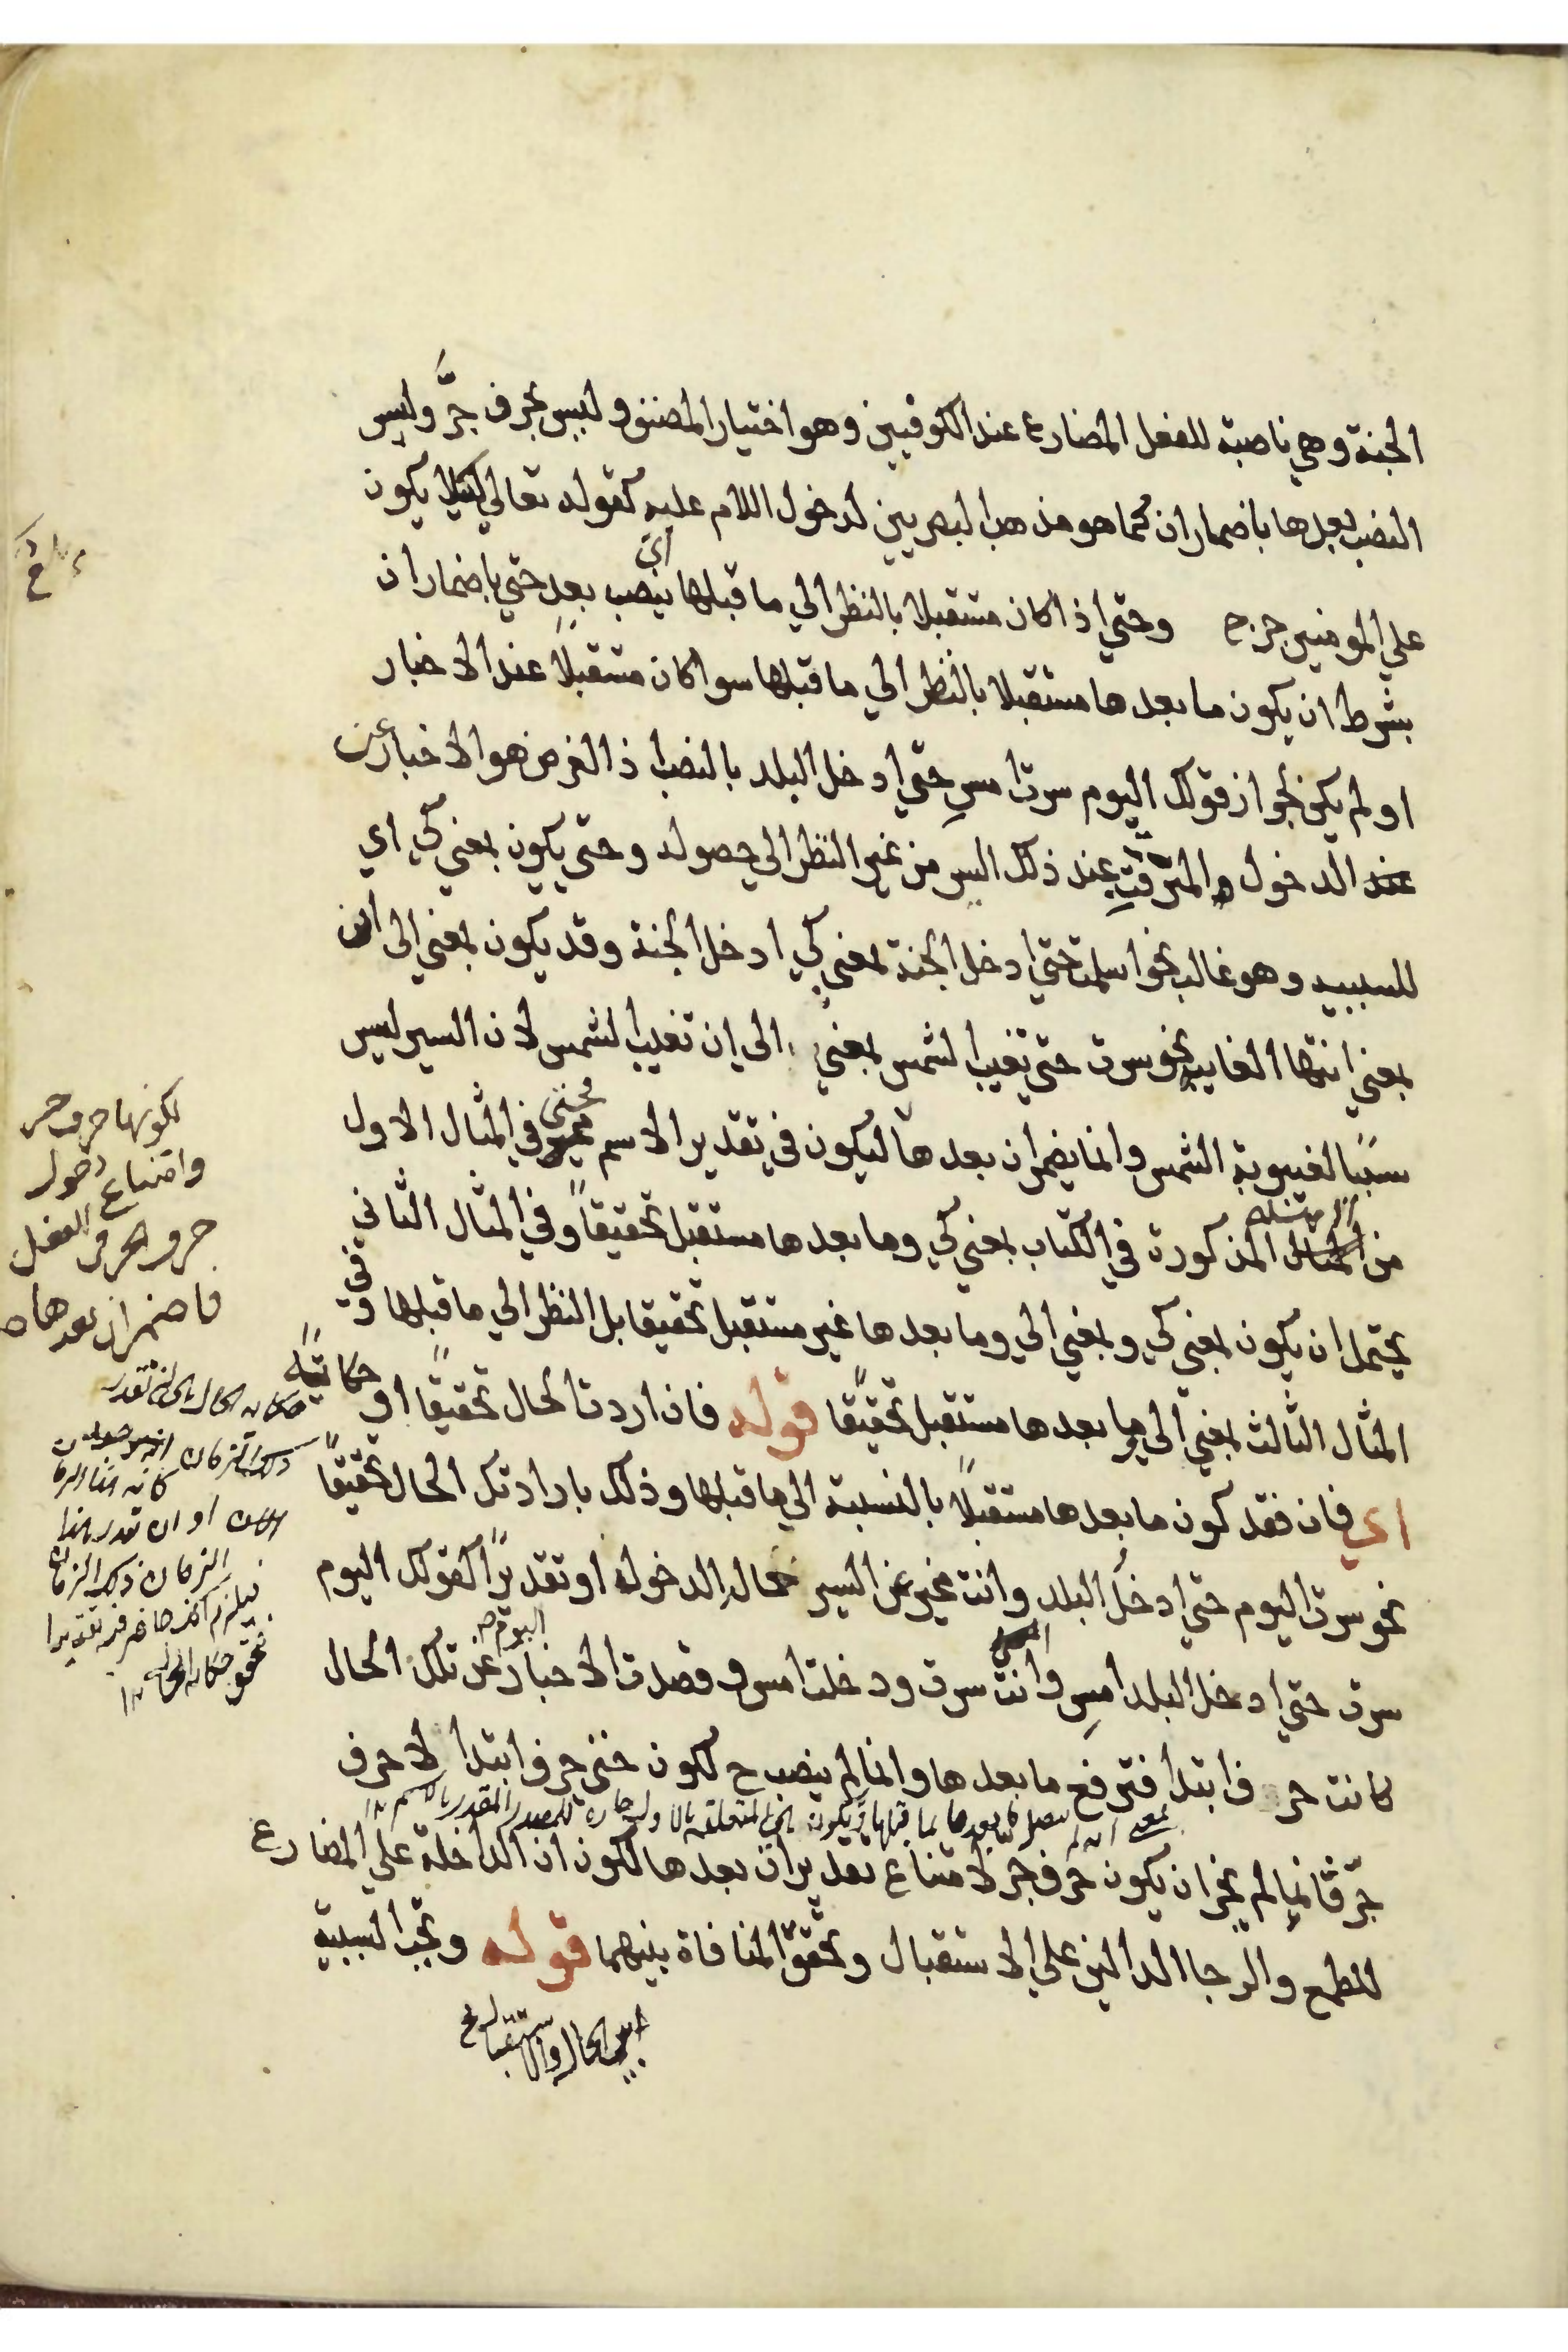 الجنة وهي ناصبة للفعل المضارع عند الكوفيين وهو اختيار المصنف وليس بحرف جرّ وليس
النصب بعدها باضمار ان كما هو مذهب البصريين لدخول اللام عليه كقوله تعالي لكيلا يكون
علي المومنين حرج وحتي اذا كان مستقبلا بالنظر الي ما قبلها اي ينصب بعد حتي باضمار ان
بشرط ان يكون ما بعدها مستقبلا بالنظر الي ما قبلها سوا كان مستقبلاً عند الاخبار
او لم يكن لجواز قولك اليوم سرت امسِ حتي ادخل البلد بالنصب اذ الغرض هو الاخبار عن
عند الدخول والمترقب عند ذلك السير من غير النظر الي حصوله وحتي يكون بمعني كي اي
للسببية وهو غالب نحو اسلمت حتي ادخل الجنة بمعني كي ادخل الجنة وقد يكون بمعني الي ان
بمعني انتها الغاية نحو سرت حتي تغيب الشمس بمعني الي ان تغيب الشمس لان السير ليس
سببًا لغيبوبة الشمس وانما يضمر ان بعدها ليكون في تقدير الاسم فحتي في المثال الاول
من الامثلة المذكورة في الكتاب بمعني كي وما بعدها مستقبل تحقيقاً وفي المثال الثاني
يحتمل ان يكون بمعني كي وبمعني الي وما بعدها غير مستقبل تحقيقا بل بالنظر الي ما قبلها وفي
المثال الثالث بمعني الي وما بعدها مستقبل تحقيقًا قوله فان اردت الحال تحقيقًا او حكايةً
اي فان فقد كون ما بعدها مستقبلاً بالنسبة الي ما قبلها وذلك بارادتك الحال تحقيقًا
نحو سرت اليوم حتي ادخلُ البلد وانت مخبر عن السير حال الدخول او تقديرًا كقولك اليوم
سرت حتي ادخل البلد امسِ وانت سرت ودخلت امس وقصدت الاخبار اليوم عن تلك الحال
كانت حرف ابتدا فترفع ما بعدها وانما لم ينصب ح لكون حتي حرف ابتدا لا حرف
جرّ فانما لم يجز ان يكون حرف جر لامتناع تقدير ان بعدها لكون ان الداخلة علي المضارع
للطمع والرجا الدالين علي الاستقبال وتحقق المنافاة بينهما قوله وتجب السببية
اي بين الحال والاستقبال
لكونها حرف جر
وامتناع دخول
حرف الجر في الفعل
فاضمر ان بعدها